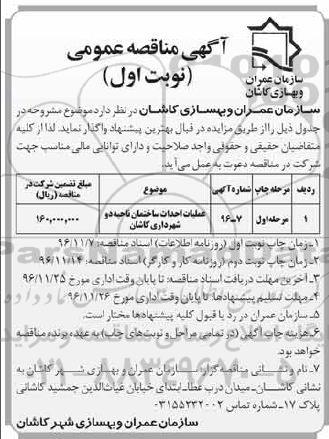 آگهی مناقصه عمومی
(نوبت اول)
سازمان عمران
وبهسازی کاشان
سازمان عمران و بهسازی کاشان در نظر دارد موضوع مشروحه در
جدول ذیل را از طریق مزایده در قبال بهترین پیشنهاد واگذار نماید. لذا از کلیه
متقاضیان حقیقی و حقوقی واجد صلاحیت و دارای توانایی مالی مناسب جهت
شرکت در مناقصه دعوت به عمل می‌آید.
ردیف مرحله چاپ شماره آگهی موضوع مبلغ تضمین شرکت در مناقصه (ریال)
۱ مرحله اول ۷-۹۶ عملیات احداث ساختمان ناحیه دو شهرداری کاشان ۱۶۰,۰۰۰,۰۰۰
۱-زمان چاپ نوبت اول (روزنامه اطلاعات) اسناد مناقصه: ۹۶/۱۱/۷
۲-زمان چاپ نوبت دوم (روزنامه کار و کارگر) اسناد مناقصه: ۹۶/۱۱/۱۴
۳-آخرین مهلت دریافت اسناد مناقصه: تا پایان وقت اداری مورخ ۹۶/۱۱/۲۵
۴-مهلت تسلیم پیشنهادها: تا پایان وقت اداری مورخ ۹۶/۱۱/۲۶
۵-سازمان عمران در رد یا قبول کلیه پیشنهادها مختار است.
۶-هزینه چاپ آگهی (در تمامی مراحل و نوبت‌های چاپ) به عهده برنده مناقصه
خواهد بود.
۷-نام و نشانی مناقصه گزار: سازمان عمران و بهسازی شهر کاشان به
نشانی کاشان-میدان درب عطا-ابتدای خیابان غیاث‌الدین جمشید کاشانی
پلاک ۱۷-شماره تماس ۰۳۱۵۵۲۳۲۰۰۲
سازمان عمران و بهسازی شهر کاشان